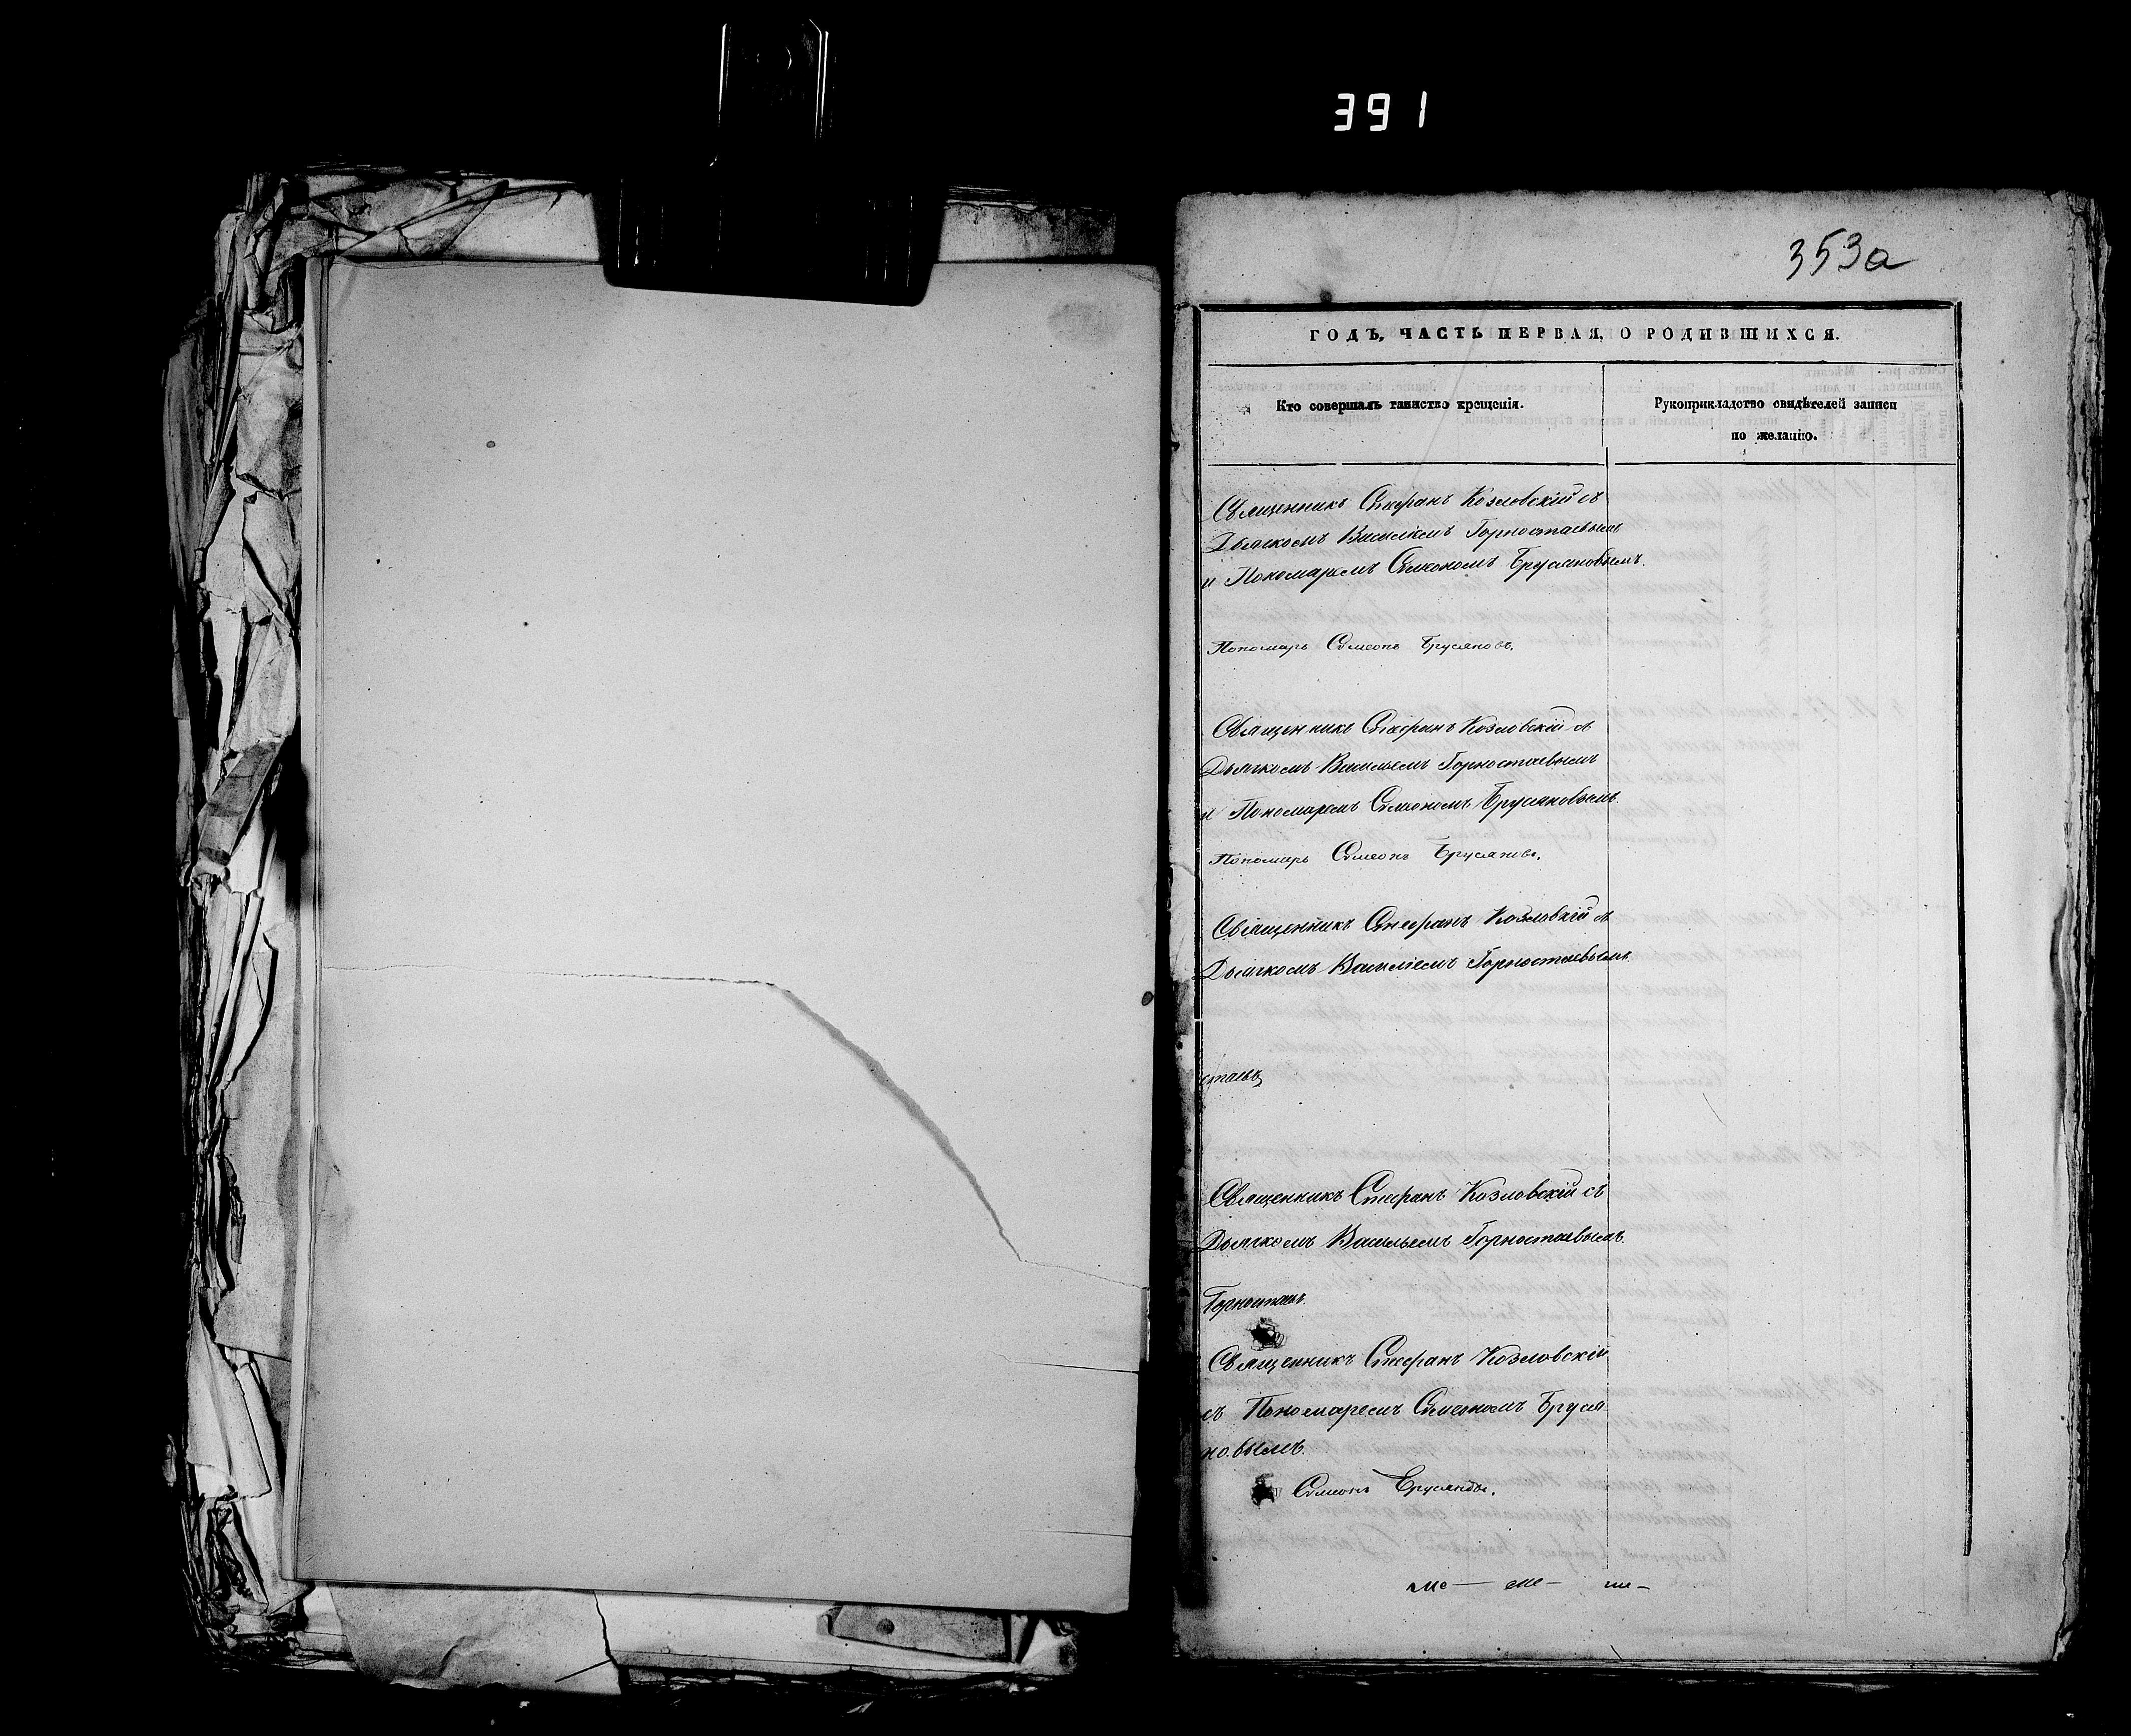 391
353а
ГОДЪ, ЧАСТЬ ПЕРВАЯ, О РОДИВШИХСЯ.
Кто совершалъ таинство крещенія.
Рукоприкладство свидѣтелей записи
по желанію.
Священникъ Стефанъ Козловскій съ
Дьячкомъ Василіемъ Горностаевымъ
и Пономаремъ Симеономъ Брусяновымъ.
Пономарь Симеонъ Брусяновъ.
Священникъ Стефанъ Козловскій съ
Дьячкомъ Васильемъ Горностаевымъ
и Пономаремъ Симеономъ Брусяновымъ.
Пономарь Симеонъ Брусяновъ.
Священникъ Стефанъ Козловскій съ
Дьячкомъ Василіемъ Горностаевымъ.
стаевъ
Священникъ Стефанъ Козловскій съ
Дьячкомъ Васильемъ Горностаевымъ.
Горностаевъ.
Священникъ Стефанъ Козловскій
съ Пономаремъ Симеономъ Бруся
новымъ.
Симеонъ Брусяновъ.